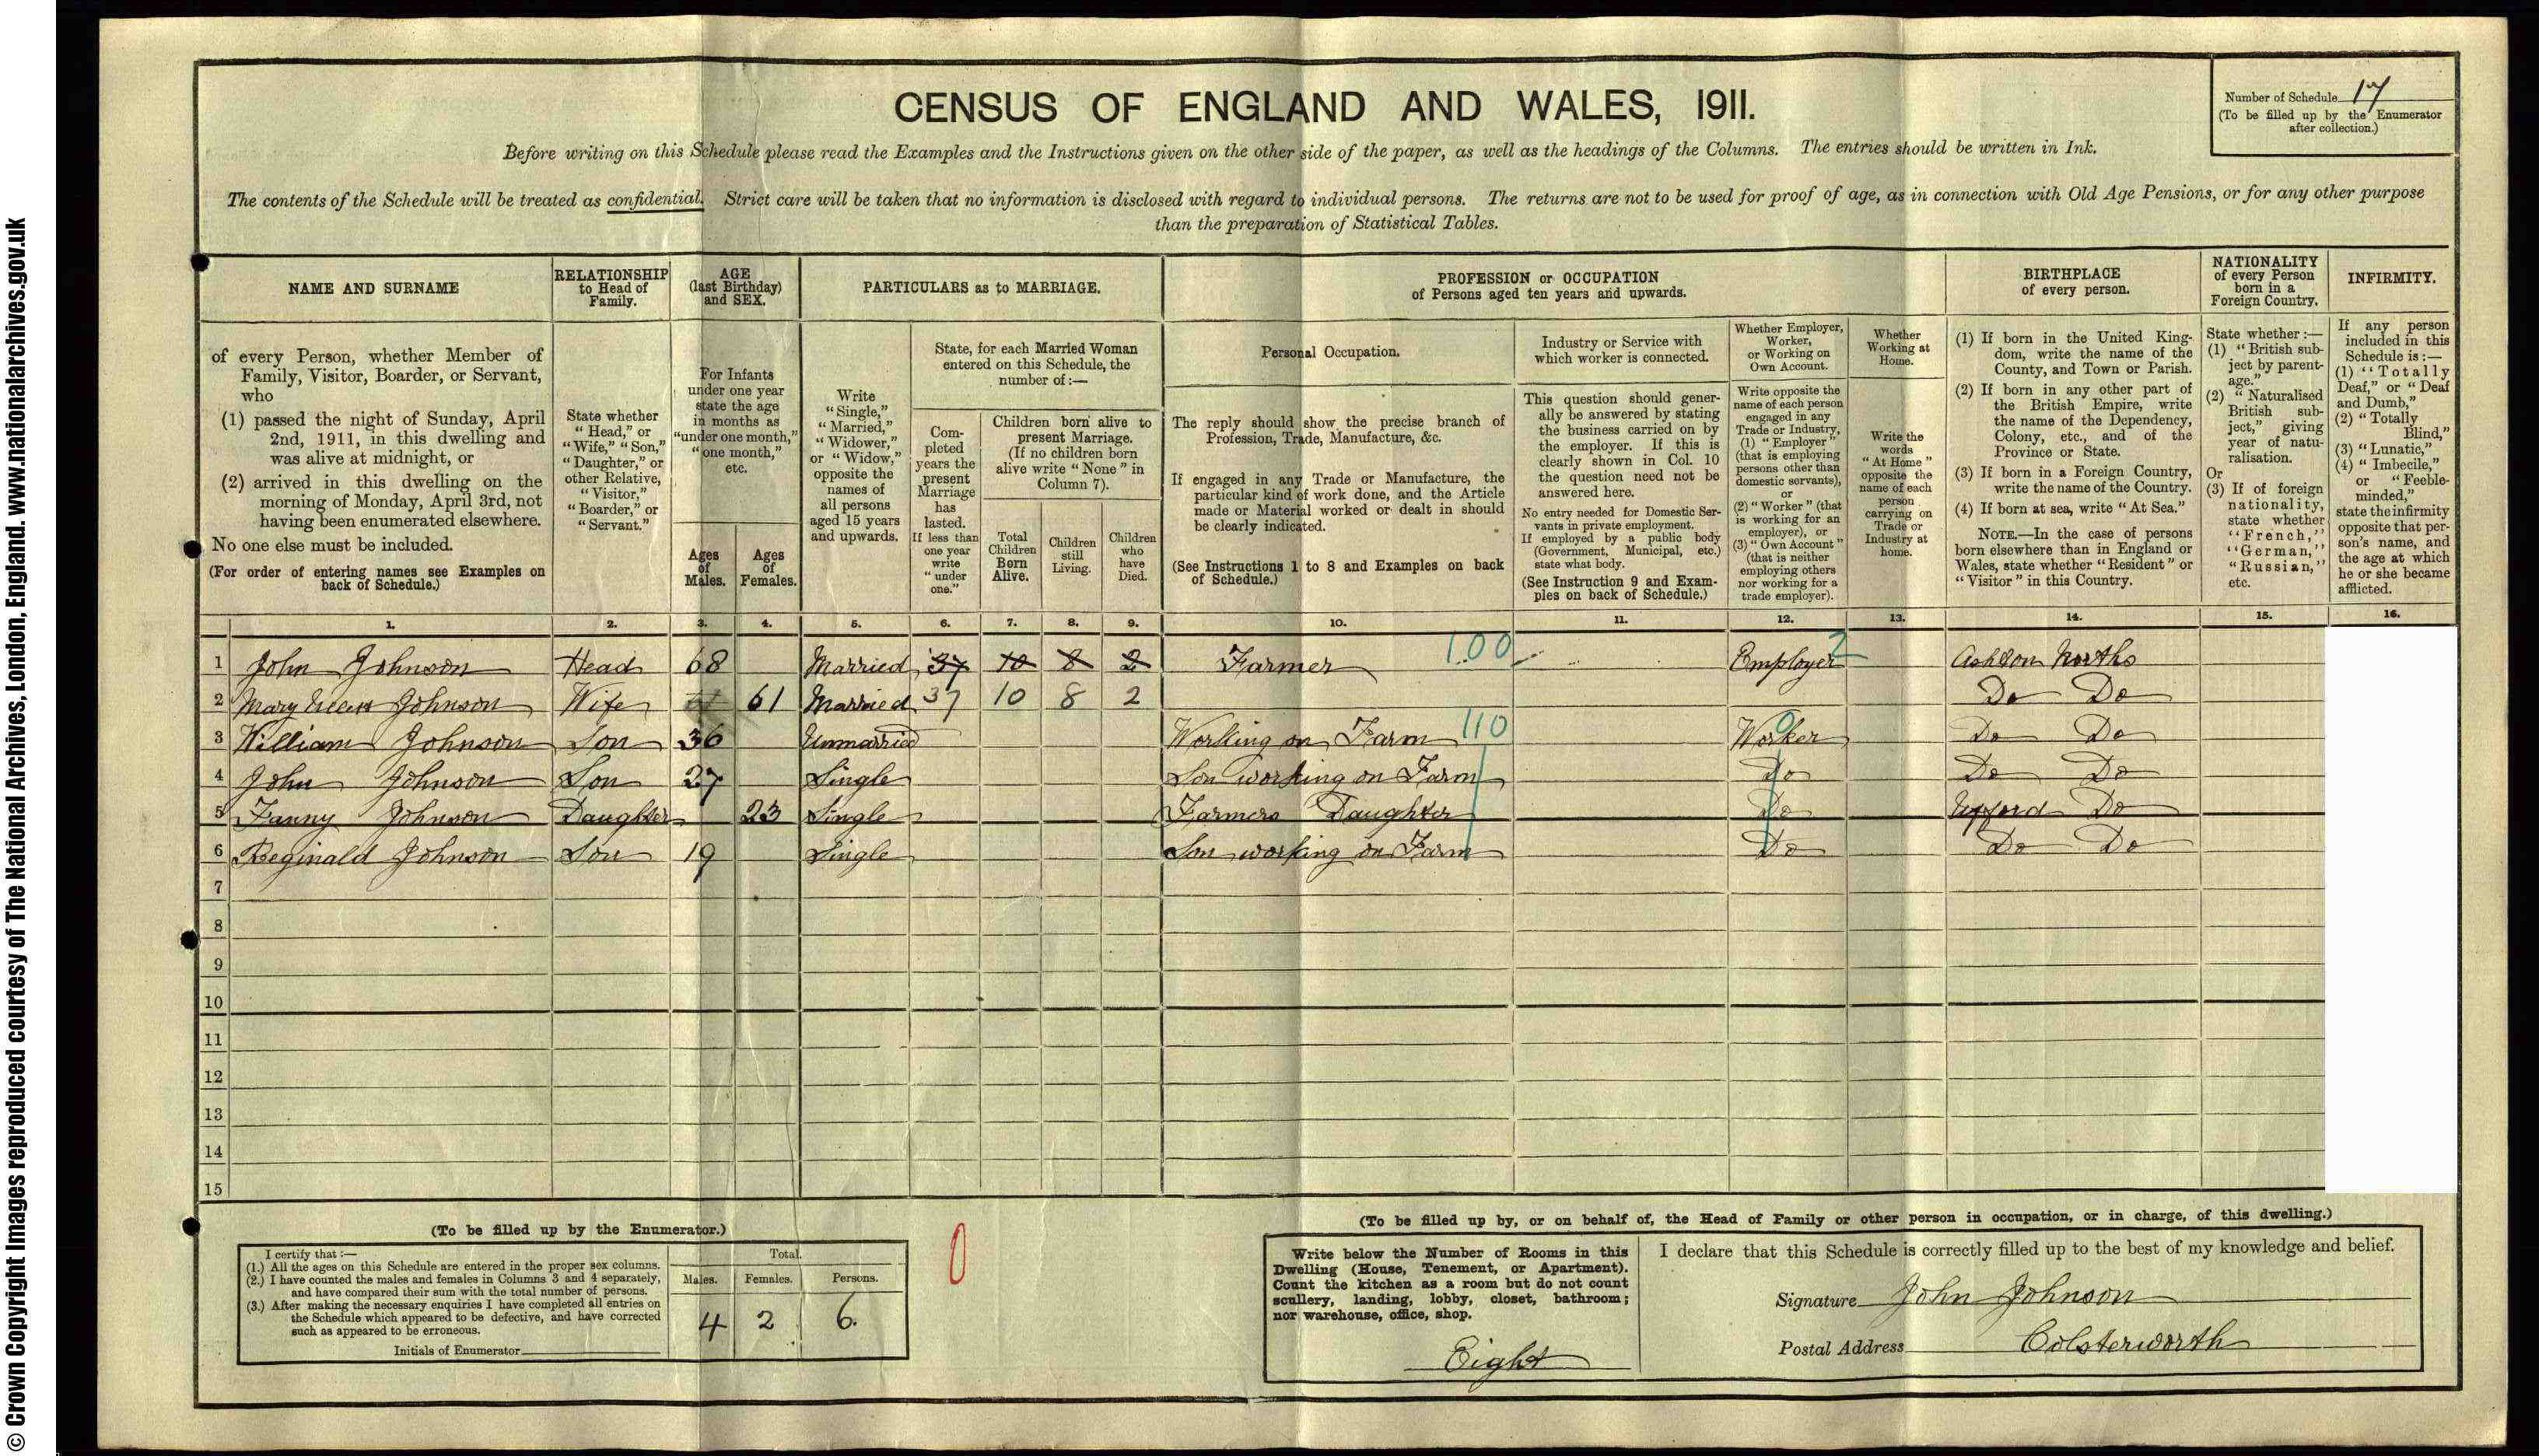 CENSUS OF ENGLAND AND WALES, 1911.
Number of Schedule 17
(To be filled up by the Enumerator
after collection.)
Before writing on this Schedule please read the Examples and the Instructions given on the other side of the paper, as well as the headings of the Columns. The entries should be written in Ink.
The contents of the Schedule will be treated as confidential. Strict care will be taken that no information is disclosed with regard to individual persons. The returns are not to be used for proof of age, as in connection with Old Age Pensions, or for any other purpose
than the preparation of Statistical Tables.
NAME AND SURNAME
of every Person, whether Member of
Family, Visitor, Boarder, or Servant,
who
(1) passed the night of Sunday, April
2nd, 1911, in this dwelling and
was alive at midnight, or
(2) arrived in this dwelling on the
morning of Monday, April 3rd, not
having been enumerated elsewhere.
No one else must be included.
(For order of entering names see Examples on
back of Schedule.)
RELATIONSHIP
to Head of
Family.
State whether
"Head," or
"Wife," "Son,"
"Daughter," or
other Relative,
"Visitor,"
"Boarder," or
"Servant."
AGE
(last Birthday)
and SEX.
For Infants
under one year
state the age
in months as
"under one month,"
"one month,"
etc.
Ages
of
Males.
Ages
of
Females.
PARTICULARS as to MARRIAGE.
Write
"Single,"
"Married,"
"Widower,"
or "Widow,"
opposite the
names of
all persons
aged 15 years
and upwards.
State, for each Married Woman
entered on this Schedule, the
number of:—
Com-
pleted
years the
present
Marriage
has
lasted.
If less than
one year
write
"under
one."
Children born alive to
present Marriage.
(If no children born
alive write "None" in
Column 7).
Total
Children
Born
Alive.
Children
still
Living.
Children
who
have
Died.
PROFESSION or OCCUPATION
of Persons aged ten years and upwards.
Personal Occupation.
The reply should show the precise branch of
Profession, Trade, Manufacture, &c.
If engaged in any Trade or Manufacture, the
particular kind of work done, and the Article
made or Material worked or dealt in should
be clearly indicated.
(See Instructions 1 to 8 and Examples on back
of Schedule.)
Industry or Service with
which worker is connected.
This question should gener-
ally be answered by stating
the business carried on by
the employer. If this is
clearly shown in Col. 10
the question need not be
answered here.
No entry needed for Domestic Ser-
vants in private employment.
If employed by a public body
(Government, Municipal, etc.)
state what body.
(See Instruction 9 and Exam-
ples on back of Schedule.)
Whether Employer,
Worker,
or Working on
Own Account.
Write opposite the
name of each person
engaged in any
Trade or Industry,
(1) "Employer"
(that is employing
persons other than
domestic servants),
or
(2) "Worker" (that
is working for an
employer), or
(3) "Own Account"
(that is neither
employing others
nor working for a
trade employer).
Whether
Working at
Home.
Write the
words
"At Home"
opposite the
name of each
person
carrying on
Trade or
Industry at
home.
BIRTHPLACE
of every person.
(1) If born in the United King-
dom, write the name of the
County, and Town or Parish.
(2) If born in any other part of
the British Empire, write
the name of the Dependency,
Colony, etc., and of the
Province or State.
(3) If born in a Foreign Country,
write the name of the Country.
(4) If born at sea, write "At Sea."
NOTE.—In the case of persons
born elsewhere than in England or
Wales, state whether "Resident" or
"Visitor" in this Country.
NATIONALITY
of every Person
born in a
Foreign Country.
State whether:—
(1) "British sub-
ject by parent-
age."
(2) "Naturalised
British sub-
ject," giving
year of natu-
ralisation.
Or
(3) If of foreign
nationality,
state whether
"French,"
"German,"
"Russian,"
etc.
INFIRMITY.
If any person
included in this
Schedule is:—
(1) "Totally
Deaf," or "Deaf
and Dumb,"
(2) "Totally
Blind,"
(3) "Lunatic,"
(4) "Imbecile,"
or "Feeble-
minded,"
state the infirmity
opposite that per-
son's name, and
the age at which
he or she became
afflicted.
1. 2. 3. 4. 5. 6. 7. 8. 9. 10. 11. 12. 13. 14. 15. 16.
1 John Johnson Head 68 Married 37 10 8 2 Farmer 100 Employer 2 Ashton Norths
2 Mary Ellen Johnson Wife 61 Married 37 10 8 2 Do Do
3 William Johnson Son 36 Unmarried Working on Farm 110 Worker Do Do
4 John Johnson Son 27 Single Son working on Farm Do Do Do
5 Fanny Johnson Daughter 23 Single Farmers Daughter Do Ufford Do
6 Reginald Johnson Son 19 Single Son working on Farm Do Do Do
7
8
9
10
11
12
13
14
15
(To be filled up by the Enumerator.)
I certify that:—
(1.) All the ages on this Schedule are entered in the proper sex columns.
(2.) I have counted the males and females in Columns 3 and 4 separately,
and have compared their sum with the total number of persons.
(3.) After making the necessary enquiries I have completed all entries on
the Schedule which appeared to be defective, and have corrected
such as appeared to be erroneous.
Initials of Enumerator
Total.
Males. Females. Persons.
4 2 6.
0
(To be filled up by, or on behalf of, the Head of Family or other person in occupation, or in charge, of this dwelling.)
Write below the Number of Rooms in this
Dwelling (House, Tenement, or Apartment).
Count the kitchen as a room but do not count
scullery, landing, lobby, closet, bathroom;
nor warehouse, office, shop.
Eight
I declare that this Schedule is correctly filled up to the best of my knowledge and belief.
Signature John Johnson
Postal Address Colsterworth
© Crown Copyright Images reproduced courtesy of The National Archives, London, England. www.nationalarchives.gov.uk